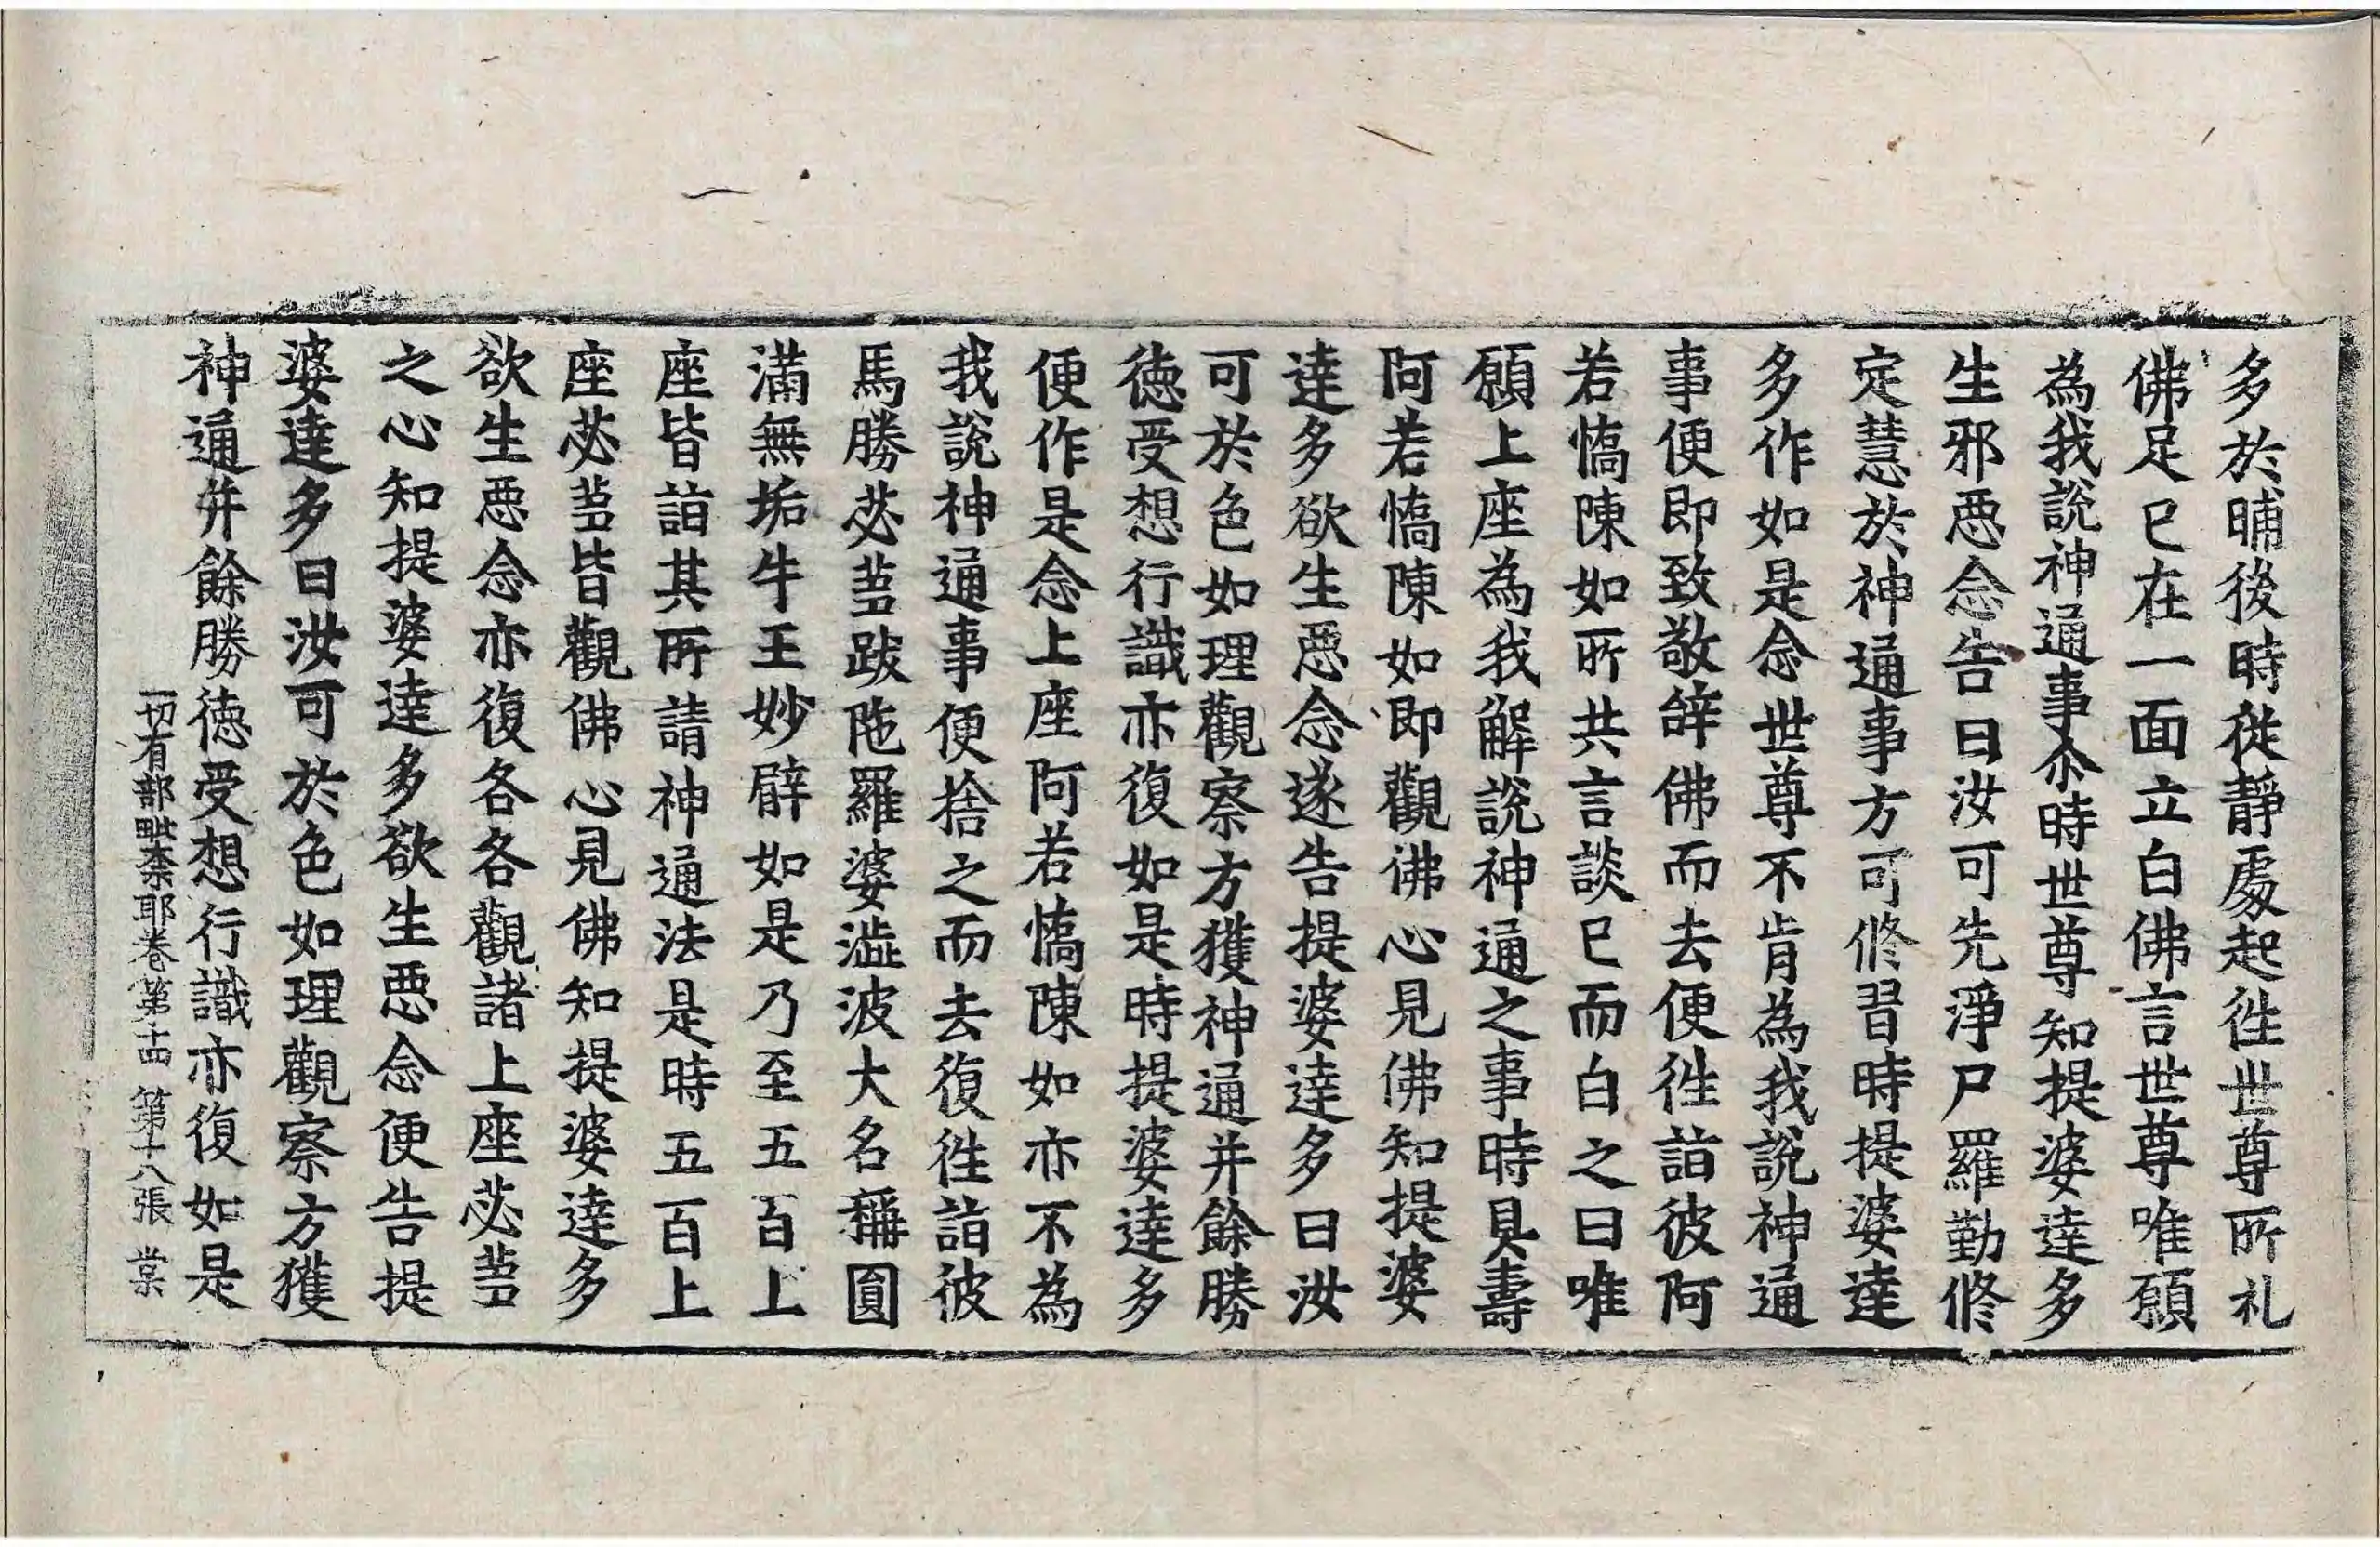 多於晡後時從靜處起往世尊所礼
佛足已在一面立白佛言世尊唯願
為我説神通事尒時世尊知提婆達多
生邪惡念告曰汝可先淨尸羅勤修
定慧於神通事方可修習時提婆達
多作如是念世尊不肯為我說神通
事便即致敬辝佛而去便往詣彼阿
若憍陳如所共言談已而白之曰唯
願上座為我解說神通之事時具壽
阿若憍陳如即觀佛心見佛知提婆
達多欲生惡念遂告提婆達多曰汝
可於色如理觀察方獲神通并餘勝
德受想行識亦復如是時提婆達多
便作是念上座阿若憍陳如亦不為
我說神通事便捨之而去復往詣彼
馬勝苾蒭跋陁羅婆澁波大名稱圓
滿無垢牛王妙臂如是乃至五百上
座皆詣其所請神通法是時五百上
座苾蒭皆觀佛心見佛知提婆達多
欲生惡念亦復各各觀諸上座苾蒭
之心知提婆達多欲生惡念便告提
婆達多曰汝可於色如理觀察方獲
神通并餘勝德受想行識亦復如是
一切有部毗柰耶卷第十四 第十八張 棠